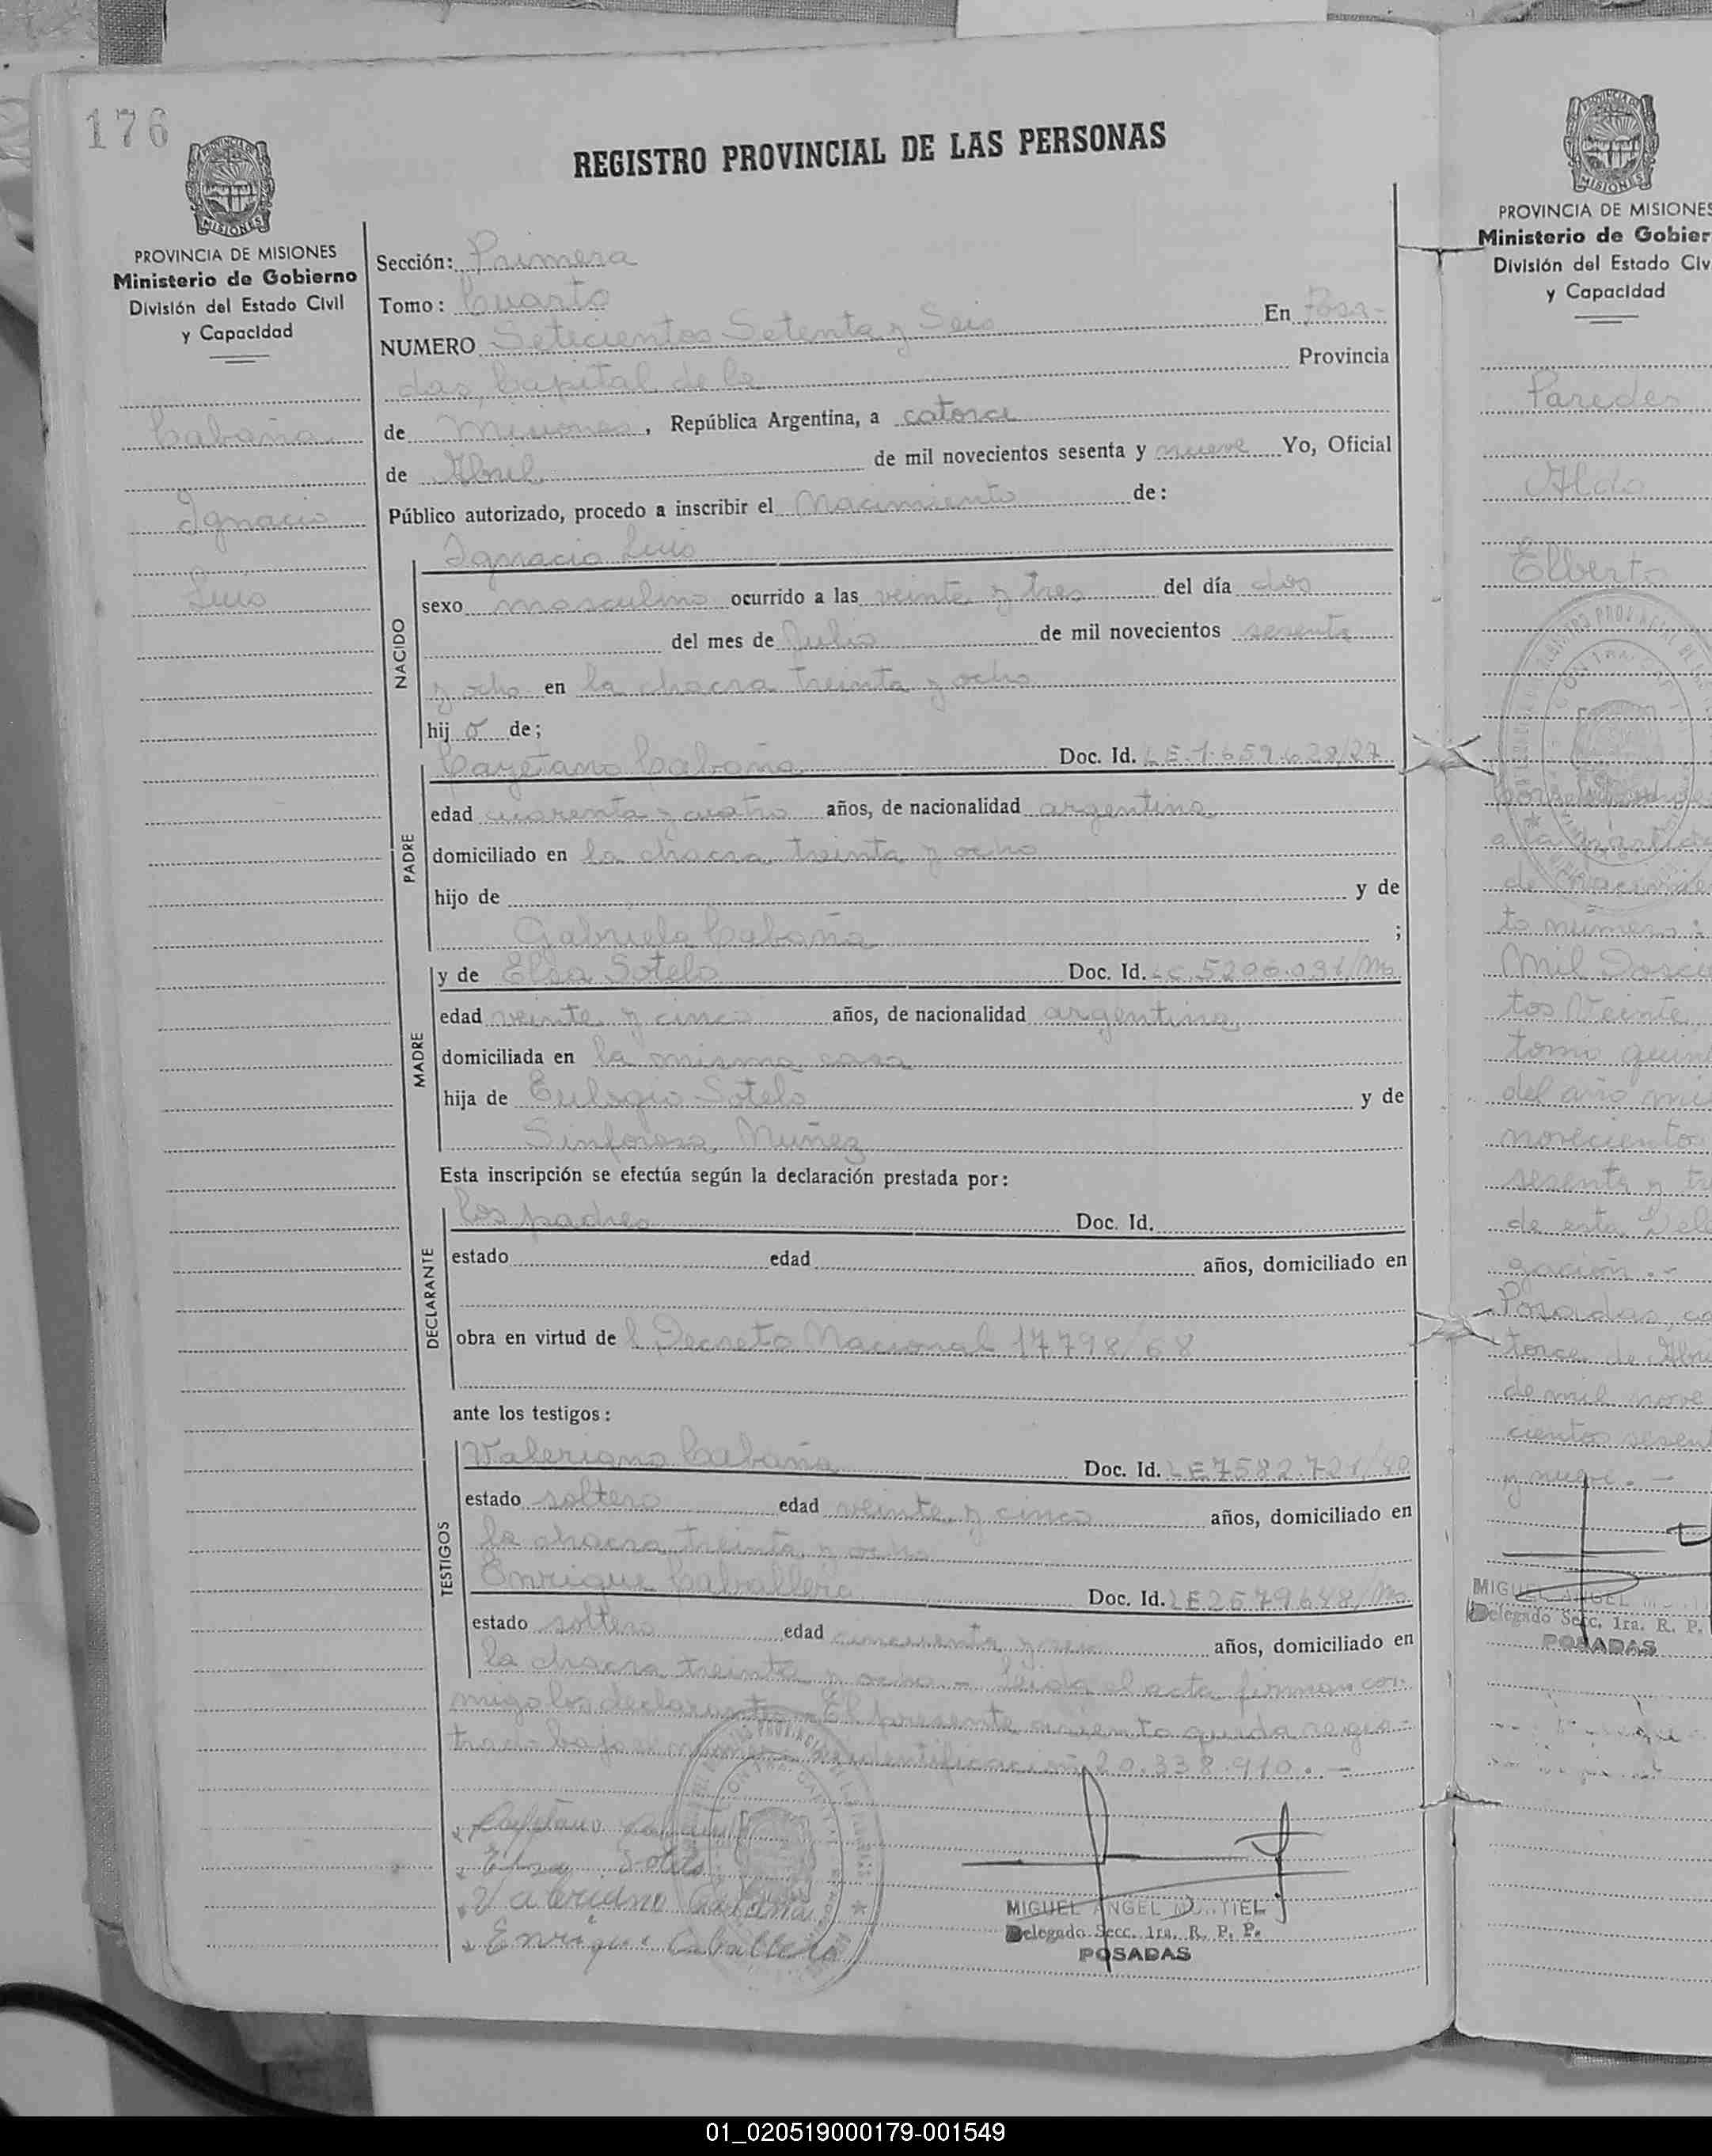 176
REGISTRO PROVINCIAL DE LAS PERSONAS
PROVINCIA DE MISIONES
Ministerio de Gobierno
División del Estado Civil
y Capacidad
Cabaña
Ignacio
Luis
Sección: Primera
Tomo: Cuarto
NUMERO Setecientos Setenta y Seis En Posa-
das, Capital de la Provincia
de Misiones, República Argentina, a catorce
de Abril de mil novecientos sesenta y nueve Yo, Oficial
Público autorizado, procedo a inscribir el Nacimiento de:
Ignacio Luis
NACIDO
sexo masculino ocurrido a las veinte y tres del día dos
del mes de Julio de mil novecientos sesenta
y ocho en la chacra treinta y ocho
hijo de;
PADRE
Cayetano Cabaña Doc. Id. LE.1.659.629/27
edad cuarenta y cuatro años, de nacionalidad argentina
domiciliado en la chacra treinta y ocho
hijo de y de
Gabriela Cabaña ;
MADRE
y de Elsa Sotelo Doc. Id. LC.5296.031/Ms
edad veinte y cinco años, de nacionalidad argentina
domiciliada en la misma casa
hija de Eulogio Sotelo y de
Sinforosa Nuñez
Esta inscripción se efectúa según la declaración prestada por:
DECLARANTE
los padres Doc. Id.
estado edad años, domiciliado en
obra en virtud de l Decreto Nacional 17798/68
ante los testigos:
TESTIGOS
Valeriano Cabaña Doc. Id. LE7582.721/40
estado soltero edad veinte y cinco años, domiciliado en
la chacra treinta y ocho
Enrique Caballero Doc. Id. LE2579648/Ms
estado soltero edad cincuenta y seis años, domiciliado en
la chacra treinta y ocho.- Leida el acta firman con-
migo los declarantes.- El presente asiento queda regis-
trado bajo el numero de identificación 20.338.910.-
Cayetano Cabaña
Elsa Sotelo
Valeriano Cabaña
Enrique Caballero
MIGUEL ANGEL MONTIEL
Delegado Secc. 1ra. R. P. P.
POSADAS
PROVINCIA DE MISIONES
Ministerio de Gobier
División del Estado Civ
y Capacidad
Paredes
Aldo
Elberto
a la
de Nacimien
to número:
Mil Doscie
tos Veinte,
tomo quin
del año mi
novecientos
sesenta y tr
de esta Dele
gación.-
Posadas, ca
torce de Abri
de mil nove
cientos sesen
y nueve.-
MIGUEL ANGEL
Delegado Secc. 1ra. R. P.
POSADAS
01_020519000179-001549